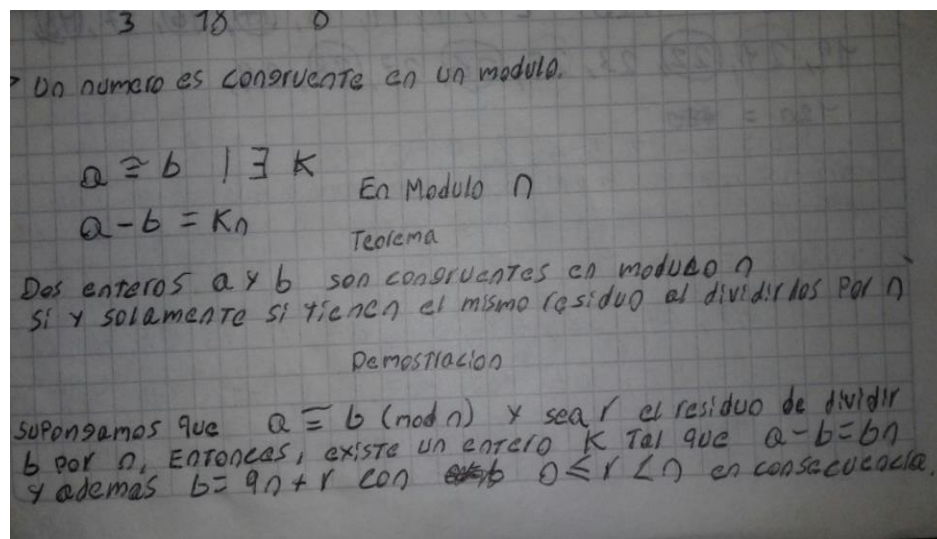 3 18 0
Un numero es congruente en un modulo.
a ≅ b | ∃ K
En Modulo n
a - b = Kn
Teorema
Dos enteros a y b son congruentes en modulo n
si y solamente si tienen el mismo residuo al dividirlos por n
Demostracion
supongamos que a ≡ b (mod n) y sea r el residuo de dividir
b por n. Entonces, existe un entero K Tal que a-b=bn
y ademas b= qn+r con 0 ≤ r < n en consecuencia.